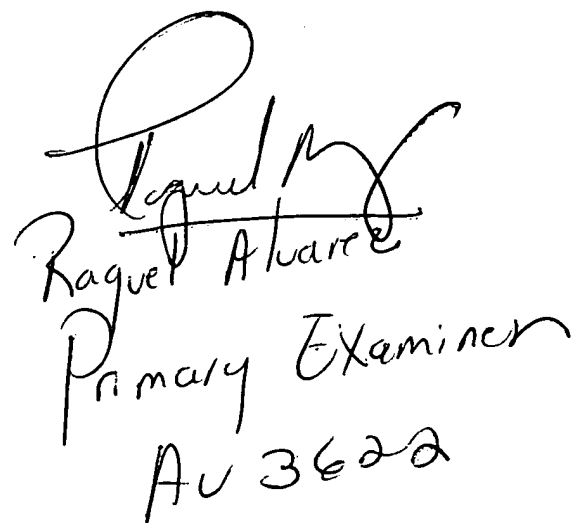 Raquel Alvarez
Primary Examiner
AU 3622